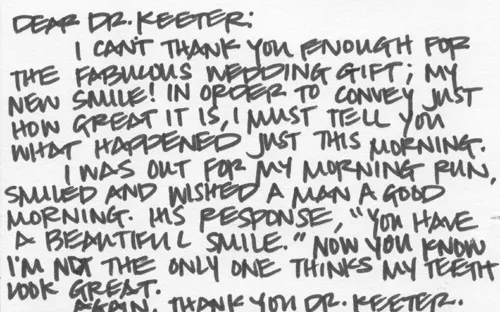 DEAR DR. KEETER:
I CAN'T THANK YOU ENOUGH FOR
THE FABULOUS WEDDING GIFT; MY
NEW SMILE! IN ORDER TO CONVEY JUST
HOW GREAT IT IS, I MUST TELL YOU
WHAT HAPPENED JUST THIS MORNING.
I WAS OUT FOR MY MORNING RUN,
SMILED AND WISHED A MAN A GOOD
MORNING. HIS RESPONSE, "YOU HAVE
A BEAUTIFUL SMILE." NOW YOU KNOW
I'M NOT THE ONLY ONE THINKS MY TEETH
LOOK GREAT.
AGAIN, THANK YOU DR. KEETER.